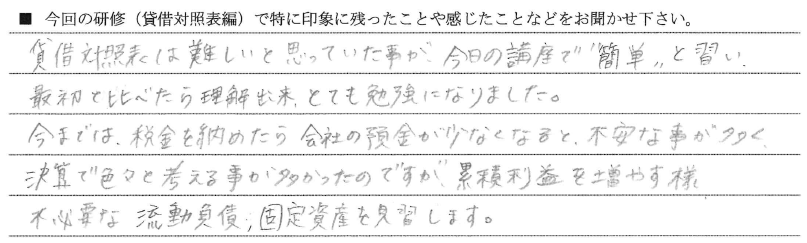 ■ 今回の研修（貸借対照表編）で特に印象に残ったことや感じたことなどをお聞かせ下さい。
貸借対照表は難しいと思っていた事が、今日の講座で〝簡単〟と習い、
最初と比べたら理解出来、とても勉強になりました。
今までは、税金を納めたら会社の預金が少なくなると、不安な事が多く、
決算で色々と考える事が多かったのですが、累積利益を増やす様
不必要な流動負債，固定資産を見習します。